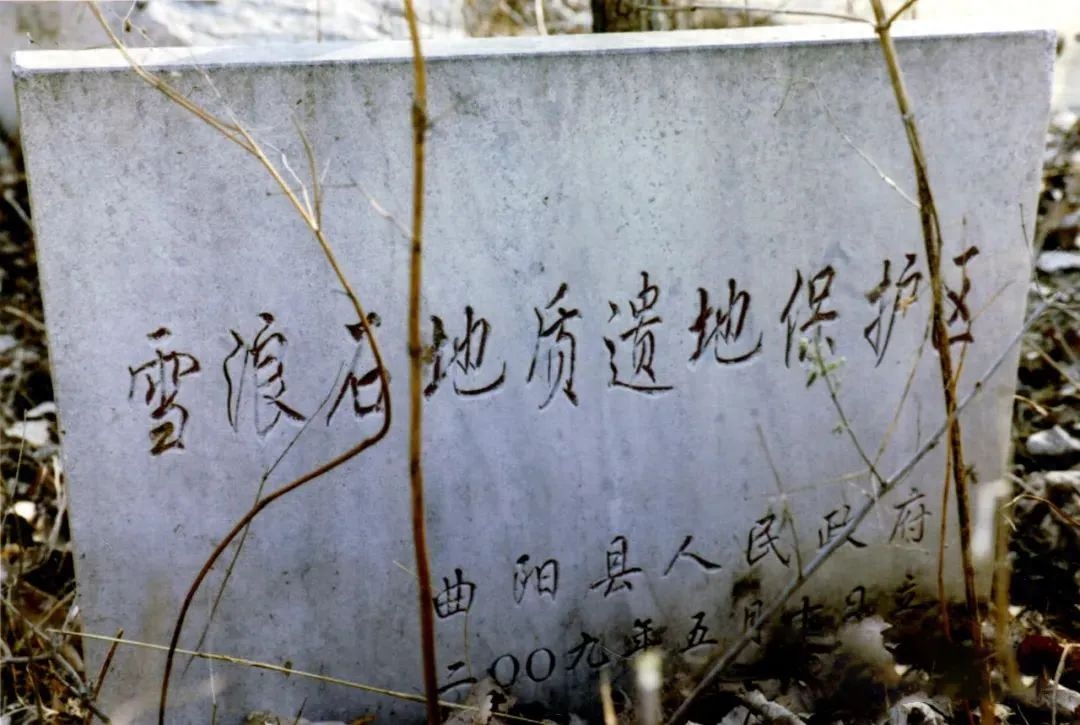 雪浪石地质遗地保护区
曲阳县人民政府
二〇〇九年五月十日立